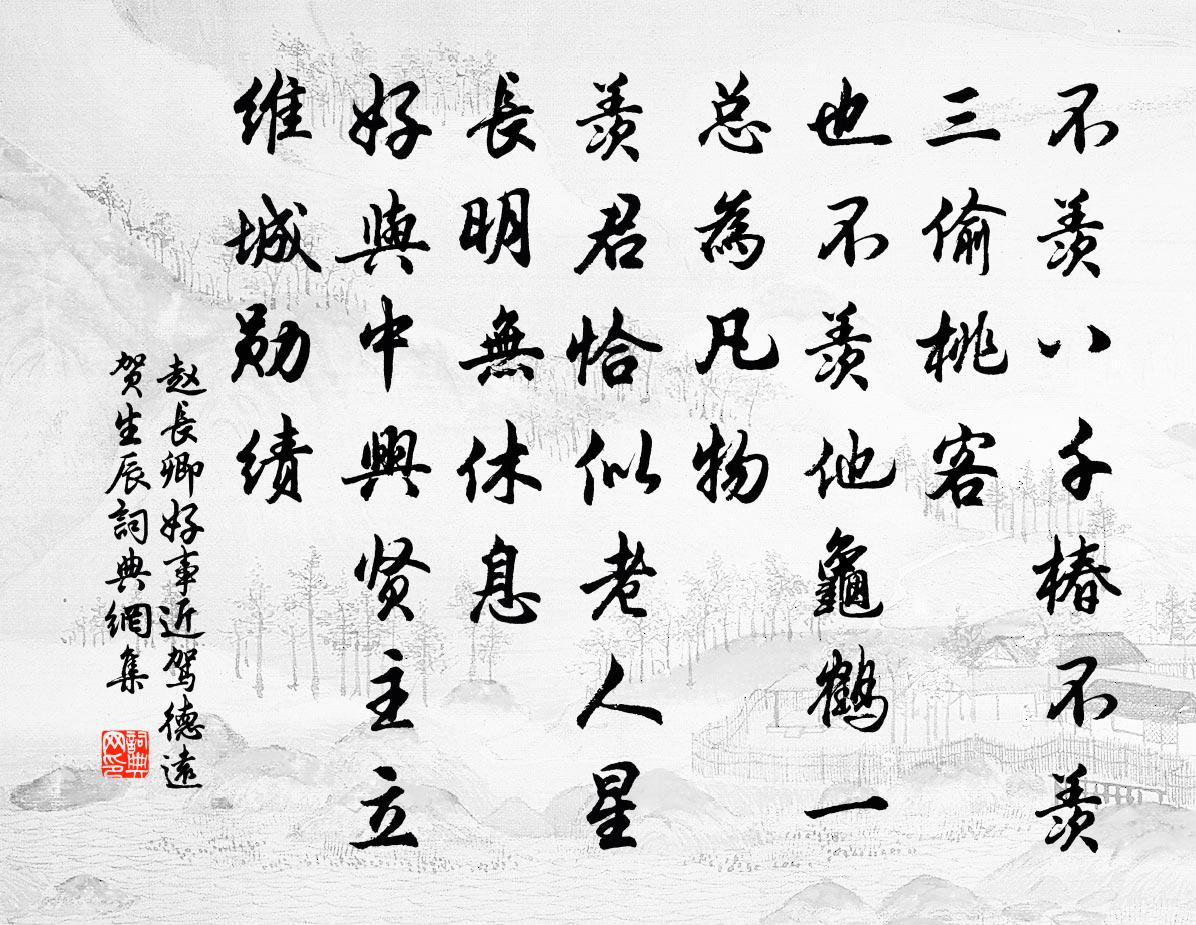 不羨八千椿不羨
三偷桃客
也不羨他龜鶴一
总為凡物
羨君恰似老人星
長明無休息
好與中興贤主立
维城勋绩
赵長卿好事近驾德遠
贺生辰詞典網集
詞典
网印